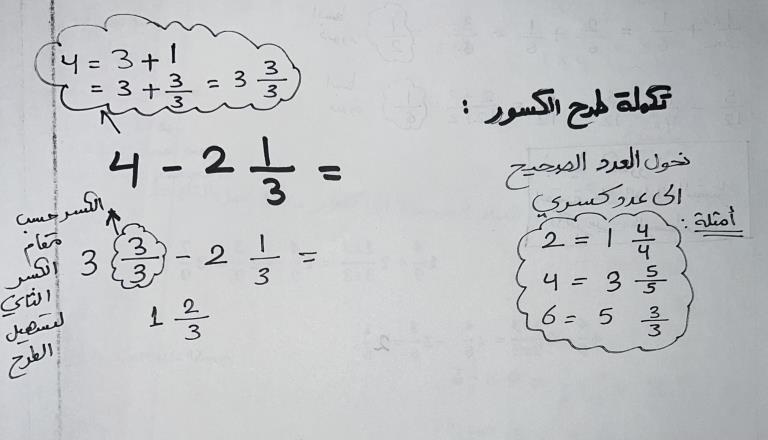 تكملة طرح الكسور :
4 = 3 + 1
= 3 + 3/3 = 3 3/3
4 - 2 1/3 =
3 3/3 - 2 1/3 =
1 2/3
الكسر حسب
مقام
الكسر
الثاني
لتسهيل
الطرح
نحول العدد الصحيح
الى عدد كسري
أمثلة :
2 = 1 4/4
4 = 3 5/5
6 = 5 3/3